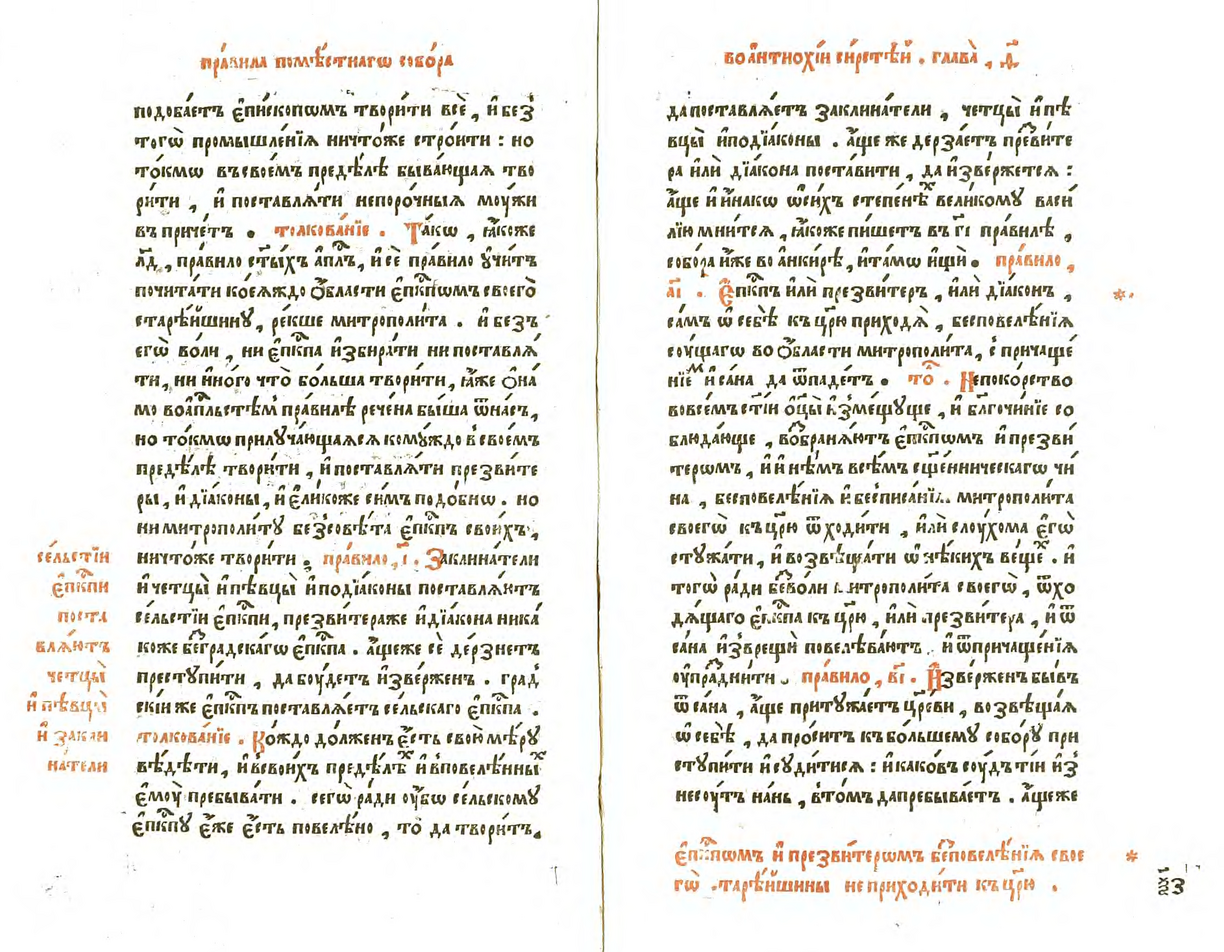 пра́вила помѣ́стнагѡ собо́ра
подоба́етъ є҆пи́скопѡмъ твори́ти всѐ , и҆ без̾
тогѡ̀ промышле́нїѧ ничто́же стро́ити : но
то́кмѡ въ свое́мъ предѣ́лѣ быва́ющаѧ тво
ри́ти , и҆ поставлѧ́ти непоро́чныѧ моу́жи
въ при́четъ . толкова́нїе . Та́кѡ , ꙗ҆́коже
л҃д , пра́вило ст҃ы́хъ а҆п҃лъ , и҆ сѐ пра́вило ᲂу҆чи́тъ
почита́ти коеѧ́ждо ѻ҆́бласти є҆п҃кпѡмъ своего̀
старѣ́йшинꙋ , ре́кше митрополи́та . и҆ безъ
є҆гѡ̀ во́ли , ни є҆п҃кпа и҆збира́ти ни поставлѧ́
ти , ни и҆но́го что̀ бо́льша твори́ти , ꙗ҆́же ѻ҆на́
мо во а҆п҃льстѣмъ пра́вилѣ рече́на бы́ша ѿ на́съ ,
но то́кмѡ прилꙋча́ющаѧсѧ комꙋ́ждо в̾ свое́мъ
предѣ́лѣ твори́ти , и҆ поставлѧ́ти презви́те
ры , и҆ дїа́коны , и҆ є҆ли́коже си́мъ подо́бнѡ . но
ни митрополи́тꙋ без̾ совѣ́та є҆п҃кпъ свои́хъ ,
ничто́же твори́ти . пра́вило , і҃ . Заклина́тели
и҆ четцы̀ и҆ пѣвцы̀ и҆ подїа́коны поставлѧ́ютъ
се́льстїи є҆п҃кпи , презви́тера же и҆ дїа́кона ника́
коже без̾ гра́дскагѡ є҆п҃кпа . а҆́ще же сѐ де́рзнетъ
престꙋпи́ти , да боу́детъ и҆зве́рженъ . град
скі́и же є҆п҃кпъ поставлѧ́етъ се́льскаго є҆п҃кпа .
толкова́нїе . Ко́ждо до́лженъ є҆́сть свою̀ мѣ́рꙋ
вѣ́дѣти , и҆ в̾ свои́хъ предѣ́лѣхъ и҆ в̾ повелѣ́нныхъ
є҆моу̀ пребыва́ти . сегѡ̀ ра́ди ᲂу҆́бѡ се́льскомꙋ
є҆п҃кпꙋ є҆́же є҆́сть повелѣ́но , то̀ да твори́тъ .
се́льстїи
є҆п҃кпи
поста
влѧ́ютъ
четцы̀
и҆ пѣвцы̀
и҆ закли
на́тели
во а҆нтїохі́и си́рстѣй . глава̀ , д҃
да поставлѧ́етъ заклина́тели , четцы̀ и҆ пѣ
вцы̀ и҆ подїа́коны . а҆́ще же дерза́етъ презви́те
ра и҆лѝ дїа́кона поста́вити , да и҆зве́ржетсѧ :
а҆́ще и҆ и҆на́кѡ ѡ҆ си́хъ сте́пенѣхъ вели́комꙋ васи́
лїю мни́тсѧ , ꙗ҆́коже пи́шетъ въ г҃і пра́вилѣ ,
собо́ра и҆́же во а҆нки́рѣ , и҆ та́мѡ и҆щѝ . пра́вило ,
а҃і . Є҆п҃кпъ и҆лѝ презви́теръ , и҆лѝ дїа́конъ ,
са́мъ ѡ҆ себѣ̀ къ цр҃ю приходѧ̀ , бес повелѣ́нїѧ
соу́щагѡ во ѻ҆́бласти митрополи́та , с̾ причаще́
нїемъ и҆ са́на да ѿпаде́тъ . то҃ . Непоко́рство
во всемъ ст҃і́и ѻ҆ц҃ы̀ и҆зме́щꙋще , и҆ бл҃гочи́нїе со
блюда́юще , возбранѧ́ютъ є҆п҃кпѡмъ и҆ презви́
терѡмъ , и҆ и҆нѣ́мъ всѣ́мъ сщ҃е́нническагѡ чи́
на , бес повелѣ́нїѧ и҆ бес писа́нїѧ митрополи́та
своегѡ̀ къ цр҃ю ѿходи́ти , и҆лѝ слоу́хома є҆гѡ̀
стꙋжа́ти , и҆ возвѣща́ти ѡ҆ нѣ́кихъ ве́щехъ . и҆
тогѡ̀ ра́ди без̾ во́ли митрополи́та своегѡ̀ , ѿхо
дѧ́щаго є҆п҃кпа къ цр҃ю , и҆лѝ презви́тера , и҆ ѿ
са́на и҆зврещѝ повелѣва́ютъ . и҆ ѿ причаще́нїѧ
ᲂу҆праздни́ти . пра́вило , в҃і . И҆зве́рженъ бы́въ
ѿ са́на , а҆́ще притꙋжа́етъ цр҃еви , возвѣща́ѧ
ѡ҆ себѣ̀ , да про́ситъ къ бо́льшемꙋ собо́рꙋ при
стꙋпи́ти и҆ сꙋди́тисѧ : и҆ како́въ соу́дъ ті́и и҆з̾
несоу́тъ на́нь , в̾ то́мъ да пребыва́етъ . а҆́ще же
* є҆п҃кпѡмъ и҆ презви́терѡмъ бес повелѣ́нїѧ свое
гѡ̀ старѣ́йшины не приходи́ти къ цр҃ю .